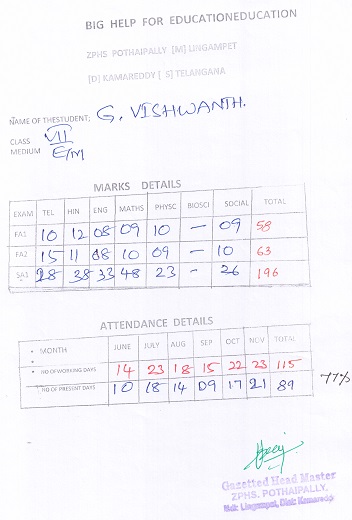 BIG HELP FOR EDUCATIONEDUCATION
ZPHS POTHAIPALLY [M] LINGAMPET
[D] KAMAREDDY [ S] TELANGANA
NAME OF THESTUDENT; G. VISHWANTH.
CLASS VII
MEDIUM E/M
MARKS DETAILS
EXAM TEL HIN ENG MATHS PHYSC BIOSCI SOCIAL TOTAL
FA1 10 12 08 09 10 — 09 58
FA2 15 11 08 10 09 — 10 63
SA1 28 38 33 48 23 - 26 196
ATTENDANCE DETAILS
• MONTH JUNE JULY AUG SEP OCT NOV TOTAL
• NO OF WORKING DAYS 14 23 18 15 22 23 115
NO OF PRESENT DAYS 10 18 14 09 17 21 89 77%
Gazetted Head Master
ZPHS. POTHAIPALLY,
Mdl: Lingampet, Dist: Kamareddy